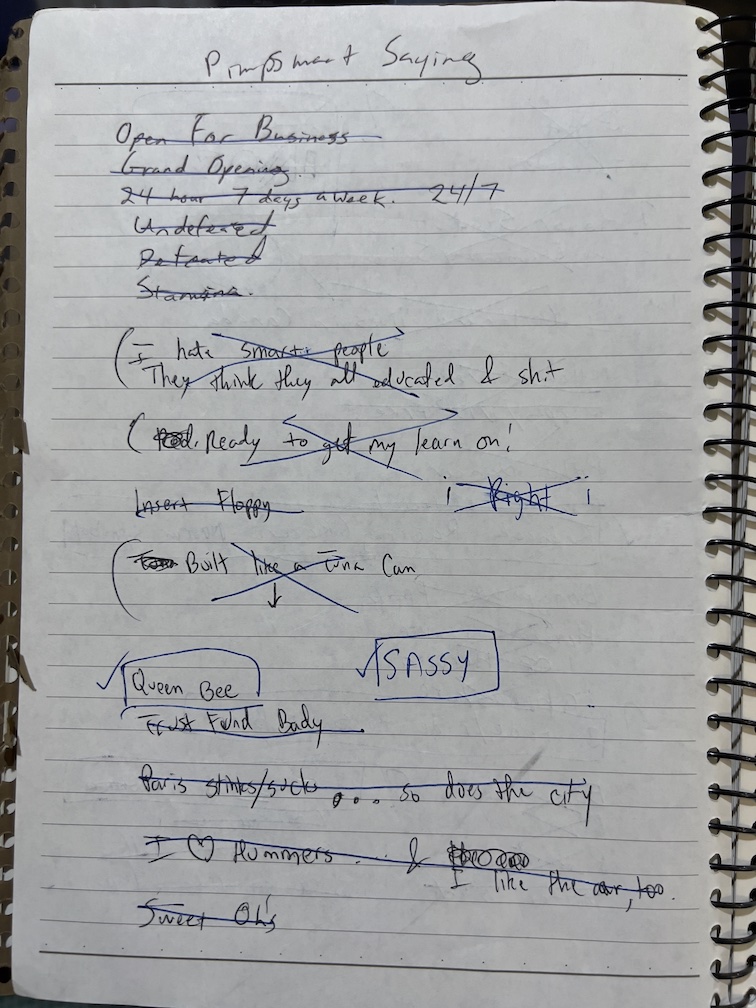 Pimpsmart Saying
Open For Business
Grand Opening.
24 hour 7 days a week. 24/7
Undefeated
Defeated
Stamina.
(I hate smart people
They think they all educated & shit
( Ready to get my learn on!
Insert Floppy
¡ Right ¡
( Built like a Tuna Can
↓
✓ Queen Bee
✓ SASSY
Trust Fund Bady
Paris stinks/sucks ... so does the city
I ♡ Hummers... &
I like the car, too.
Sweet Oh's